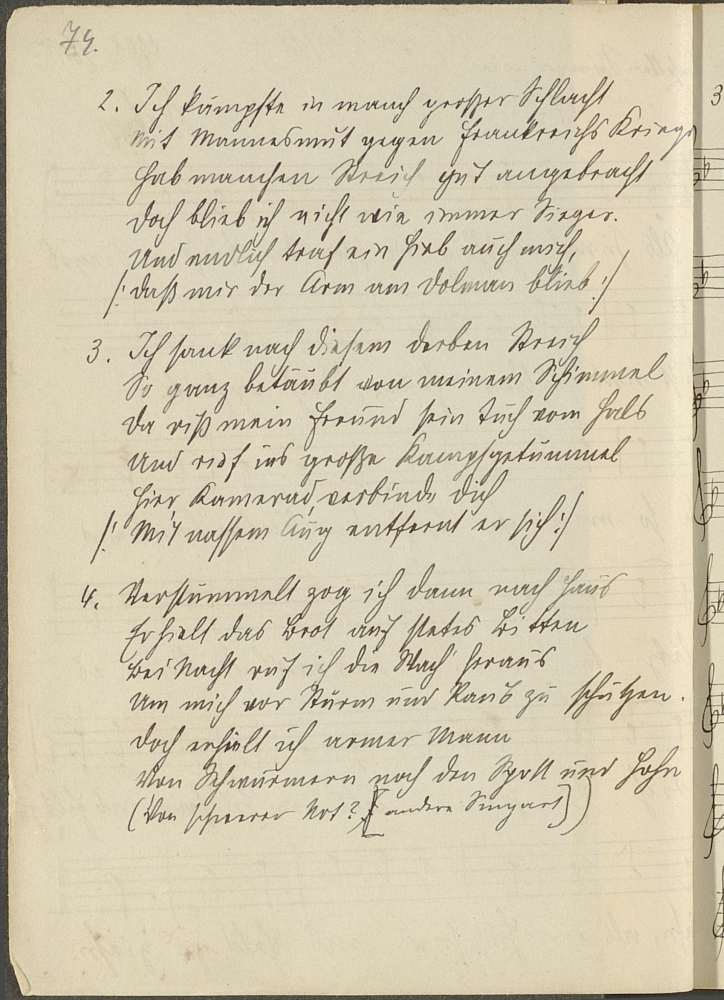 74.
2. Ich kämpfte in manch großer Schlacht
Mit Mannesmut gegen Frankreichs Krieger
Hab manchen Streich gut angebracht
Doch blieb ich nicht wie immer Sieger.
Und endlich traf ein Hieb auch mich,
/: daß mir der Arm am Dolman blieb :/
3. Ich sank nach diesem derben Streich
So ganz betäubt von meinem Schimmel
Da riß mein Freund sein Tuch vom Hals
Und rief ins große Kampfgetümmel
Hier, Kamerad, verbinde dich
/: Mit nassem Aug entfernt er sich :/
4. Verstümmelt zog ich dann nach Haus
Erhielt das Brot auf stetes Bitten
Bei Nacht ruf ich die Wach heraus
Um mich vor Sturm und Raub zu schützen.
Doch erhielt ich armer Mann
Von Schwärmern noch den Spott und Hohn
(Von schwerer Not? [andere Singart])
3